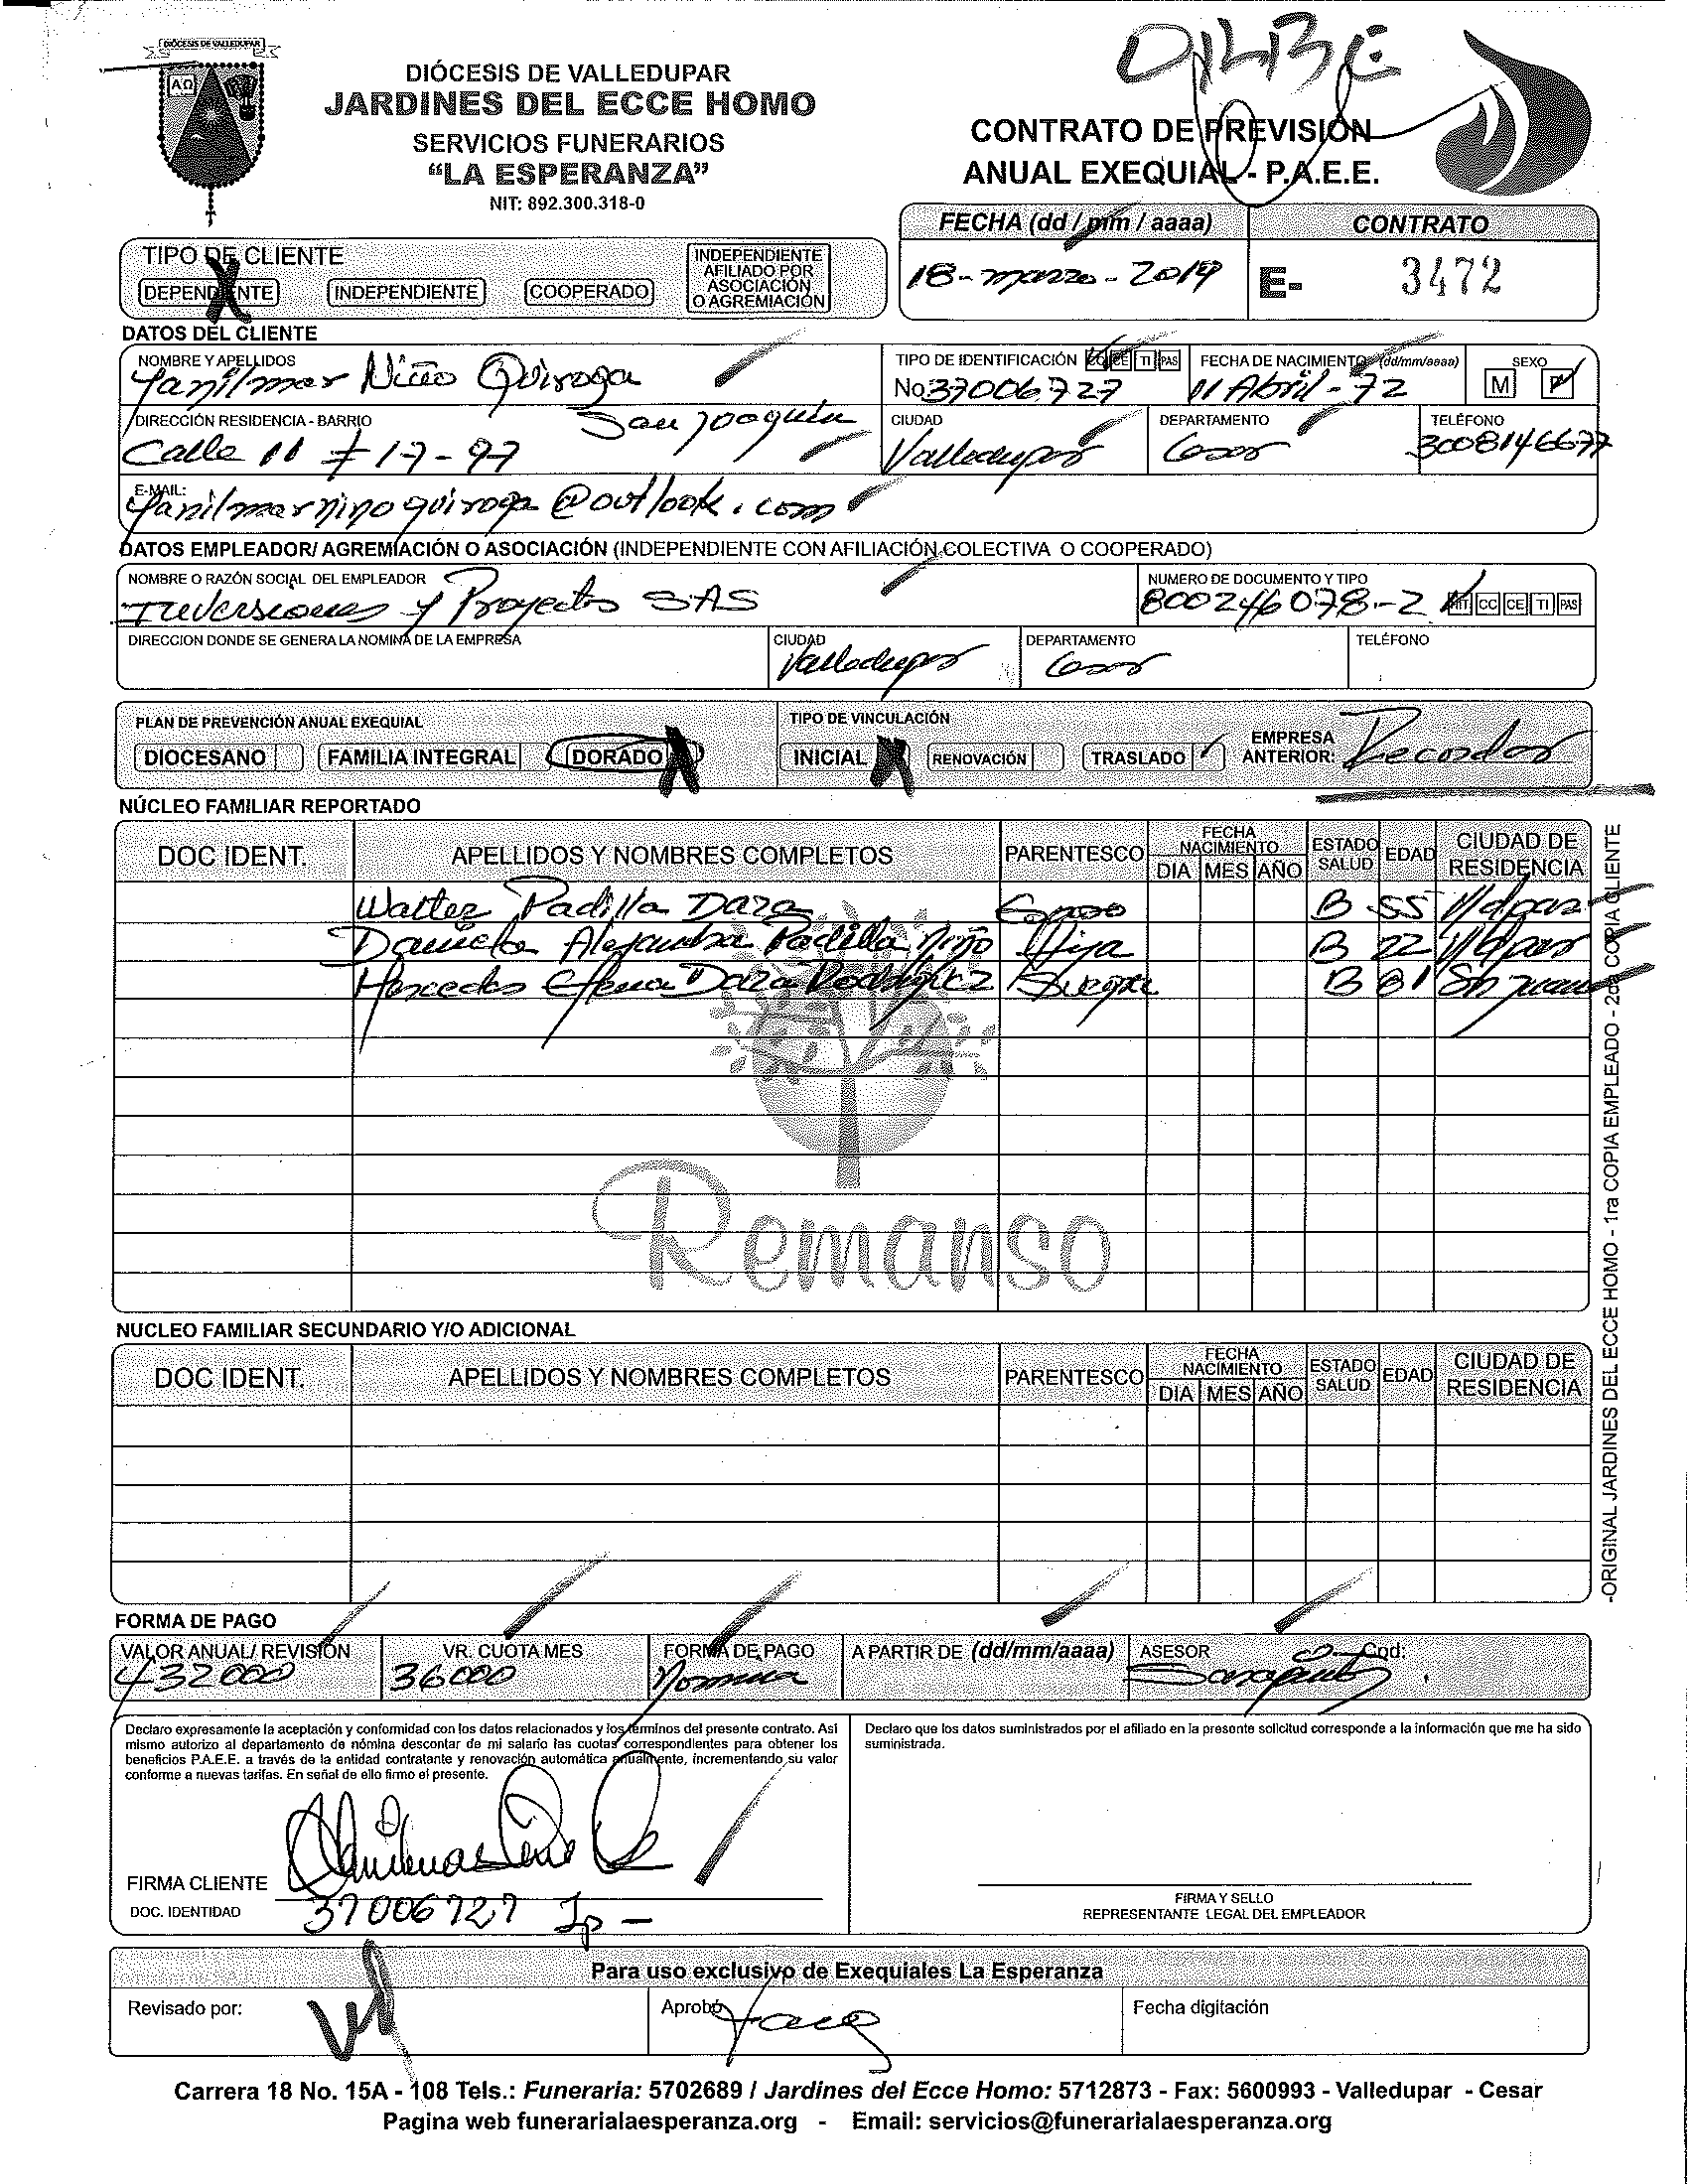 DIÓCESIS DE VALLEDUPAR
DIÓCESIS DE VALLEDUPAR
JARDINES DEL ECCE HOMO
SERVICIOS FUNERARIOS
“LA ESPERANZA”
NIT: 892.300.318-0
CONTRATO DE PREVISIÓN
ANUAL EXEQUIAL - P.A.E.E.
FECHA (dd / mm / aaaa) CONTRATO
18-marzo-2019 E- 3472
TIPO DE CLIENTE
DEPENDIENTE INDEPENDIENTE COOPERADO INDEPENDIENTE AFILIADO POR ASOCIACIÓN O AGREMIACIÓN
DATOS DEL CLIENTE
NOMBRE Y APELLIDOS TIPO DE IDENTIFICACIÓN CC CE TI PAS FECHA DE NACIMIENTO (dd/mm/aaaa) SEXO
Yanilmar Niño Quiroga No 37006727 11 Abril-72 M F
DIRECCIÓN RESIDENCIA - BARRIO CIUDAD DEPARTAMENTO TELÉFONO
Calle 11 # 17-97 San Joaquin Valledupar Cesar 3008146677
E-MAIL:
Yanilmarninoquiroga@outlook.com
DATOS EMPLEADOR/ AGREMIACIÓN O ASOCIACIÓN (INDEPENDIENTE CON AFILIACIÓN COLECTIVA O COOPERADO)
NOMBRE O RAZÓN SOCIAL DEL EMPLEADOR NUMERO DE DOCUMENTO Y TIPO
Inversiones y Proyectos SAS 800246078-2 NIT CC CE TI PAS
DIRECCION DONDE SE GENERA LA NOMINA DE LA EMPRESA CIUDAD DEPARTAMENTO TELÉFONO
Valledupar Cesar
PLAN DE PREVENCIÓN ANUAL EXEQUIAL TIPO DE VINCULACIÓN
DIOCESANO FAMILIA INTEGRAL DORADO INICIAL RENOVACIÓN TRASLADO EMPRESA ANTERIOR: Recordar
NÚCLEO FAMILIAR REPORTADO
DOC IDENT. APELLIDOS Y NOMBRES COMPLETOS PARENTESCO FECHA NACIMIENTO DIA MES AÑO ESTADO SALUD EDAD CIUDAD DE RESIDENCIA
Walter Padilla Daza Esposo B 55 V/dpar
Daniela Alejandra Padilla Niño Hija B 22 V/dpar
Mercedes Elena Daza Rodriguez Suegra B 81 Sn Juan
Remanso
NUCLEO FAMILIAR SECUNDARIO Y/O ADICIONAL
DOC IDENT. APELLIDOS Y NOMBRES COMPLETOS PARENTESCO FECHA NACIMIENTO DIA MES AÑO ESTADO SALUD EDAD CIUDAD DE RESIDENCIA
-ORIGINAL JARDINES DEL ECCE HOMO - 1ra COPIA EMPLEADO - 2da COPIA CLIENTE
FORMA DE PAGO
VALOR ANUAL/ REVISIÓN VR. CUOTA MES FORMA DE PAGO A PARTIR DE (dd/mm/aaaa) ASESOR Cod:
432000 36000 Nomina
Declaro expresamente la aceptación y conformidad con los datos relacionados y los términos del presente contrato. Asi
mismo autorizo al departamento de nómina descontar de mi salario las cuotas correspondientes para obtener los
beneficios P.A.E.E. a través de la entidad contratante y renovación automática anualmente, incrementando su valor
conforme a nuevas tarifas. En señal de ello firmo el presente.
Declaro que los datos suministrados por el afiliado en la presente solicitud corresponde a la información que me ha sido
suministrada.
FIRMA CLIENTE
DOC. IDENTIDAD 37006727
FIRMA Y SELLO
REPRESENTANTE LEGAL DEL EMPLEADOR
Para uso exclusivo de Exequiales La Esperanza
Revisado por: Aprobó Fecha digitación
Carrera 18 No. 15A - 108 Tels.: Funeraria: 5702689 / Jardines del Ecce Homo: 5712873 - Fax: 5600993 - Valledupar - Cesar
Pagina web funerarialaesperanza.org - Email: servicios@funerarialaesperanza.org